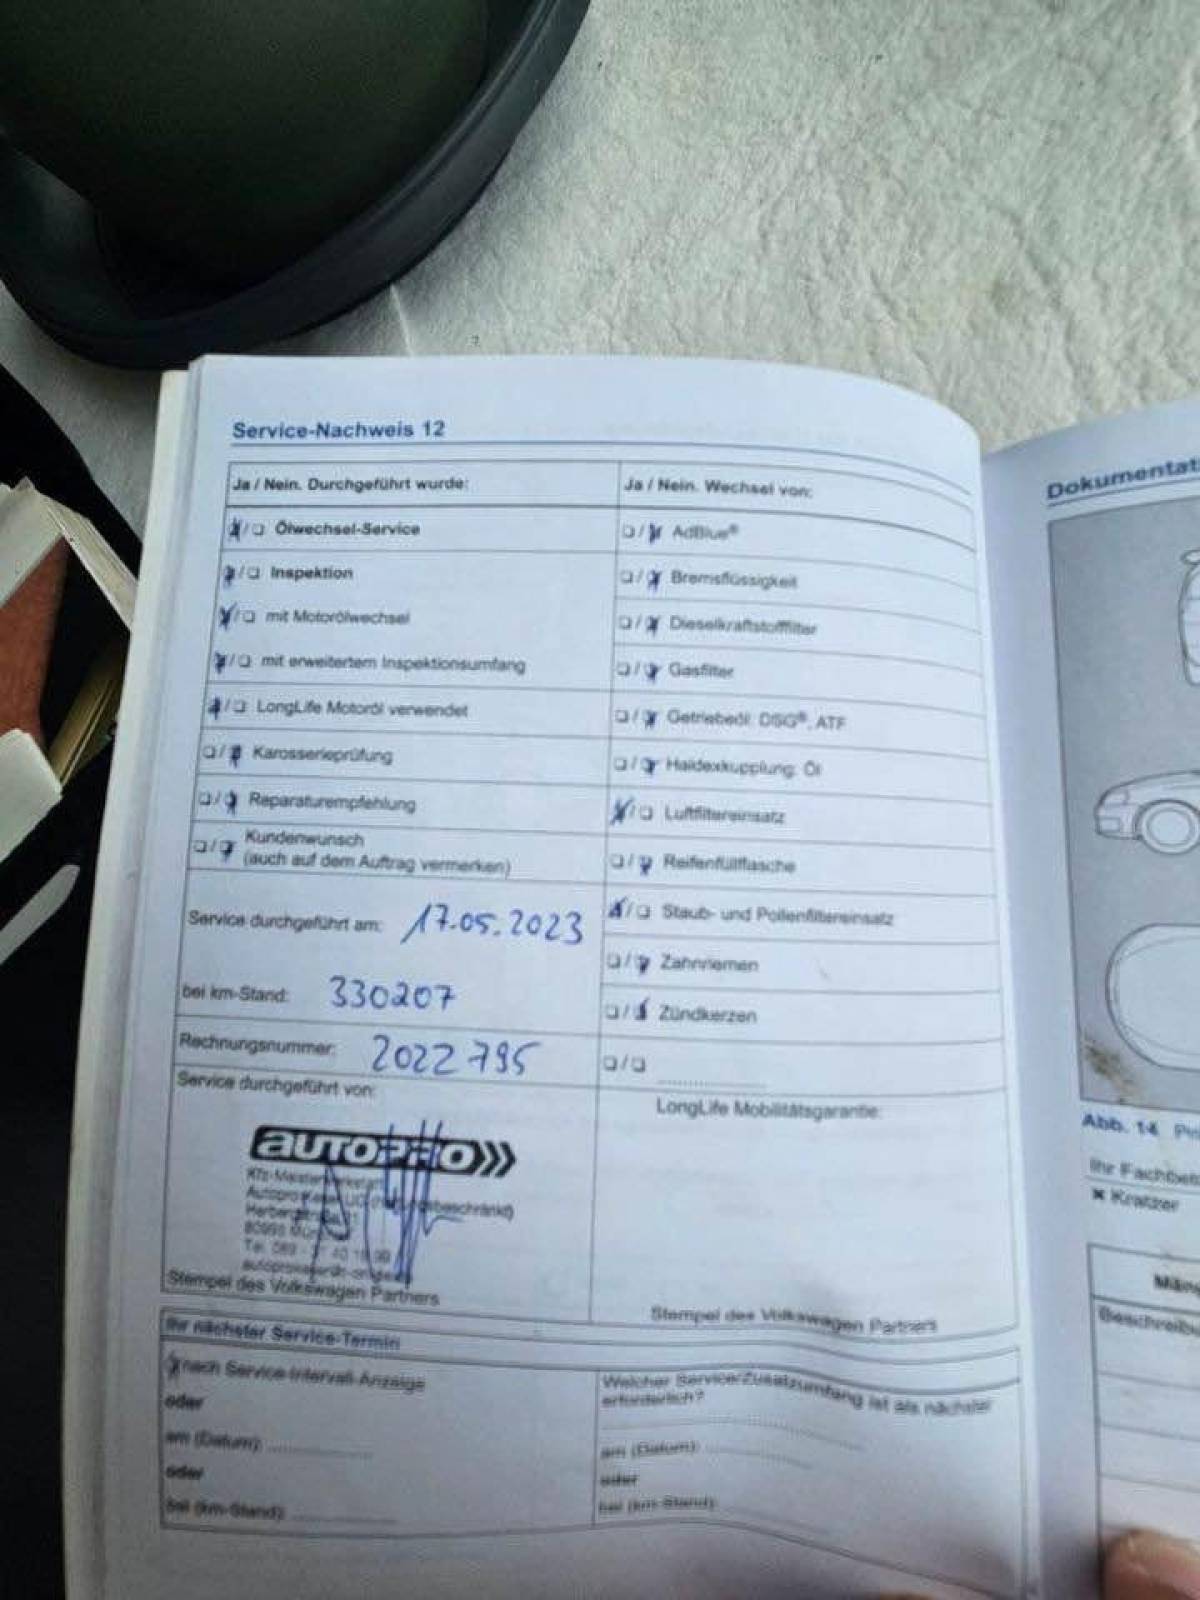 Service-Nachweis 12
Ja / Nein. Durchgeführt wurde:
❏ / ❏ Ölwechsel-Service
❏ / ❏ Inspektion
❏ / ❏ mit Motorölwechsel
❏ / ❏ mit erweitertem Inspektionsumfang
❏ / ❏ LongLife Motoröl verwendet
❏ / ❏ Karosserieprüfung
❏ / ❏ Reparaturempfehlung
❏ / ❏ Kundenwunsch
(auch auf dem Auftrag vermerken)
Service durchgeführt am: 17.05.2023
bei km-Stand: 330207
Rechnungsnummer: 2022795
Service durchgeführt von:
AUTOPRO
Kfz-Meisterwerkstatt
80993 München
Stempel des Volkswagen Partners
Ja / Nein. Wechsel von:
❏ / ❏ AdBlue®
❏ / ❏ Bremsflüssigkeit
❏ / ❏ Dieselkraftstofffilter
❏ / ❏ Gasfilter
❏ / ❏ Getriebeöl: DSG®, ATF
❏ / ❏ Haldexkupplung: Öl
❏ / ❏ Luftfiltereinsatz
❏ / ❏ Reifenfüllflasche
❏ / ❏ Staub- und Pollenfiltereinsatz
❏ / ❏ Zahnriemen
❏ / ❏ Zündkerzen
❏ / ❏ ....................
LongLife Mobilitätsgarantie:
Stempel des Volkswagen Partners
Ihr nächster Service-Termin
nach Service-Intervall-Anzeige
oder
am (Datum): ....................
oder
bei (km-Stand): ....................
Welcher Service/Zusatzumfang ist als nächster
erforderlich?
am (Datum): ....................
oder
bei (km-Stand): ....................
Dokumentat
Abb. 14
Ihr Fachbet
✖ Kratzer
Män
Beschreibu